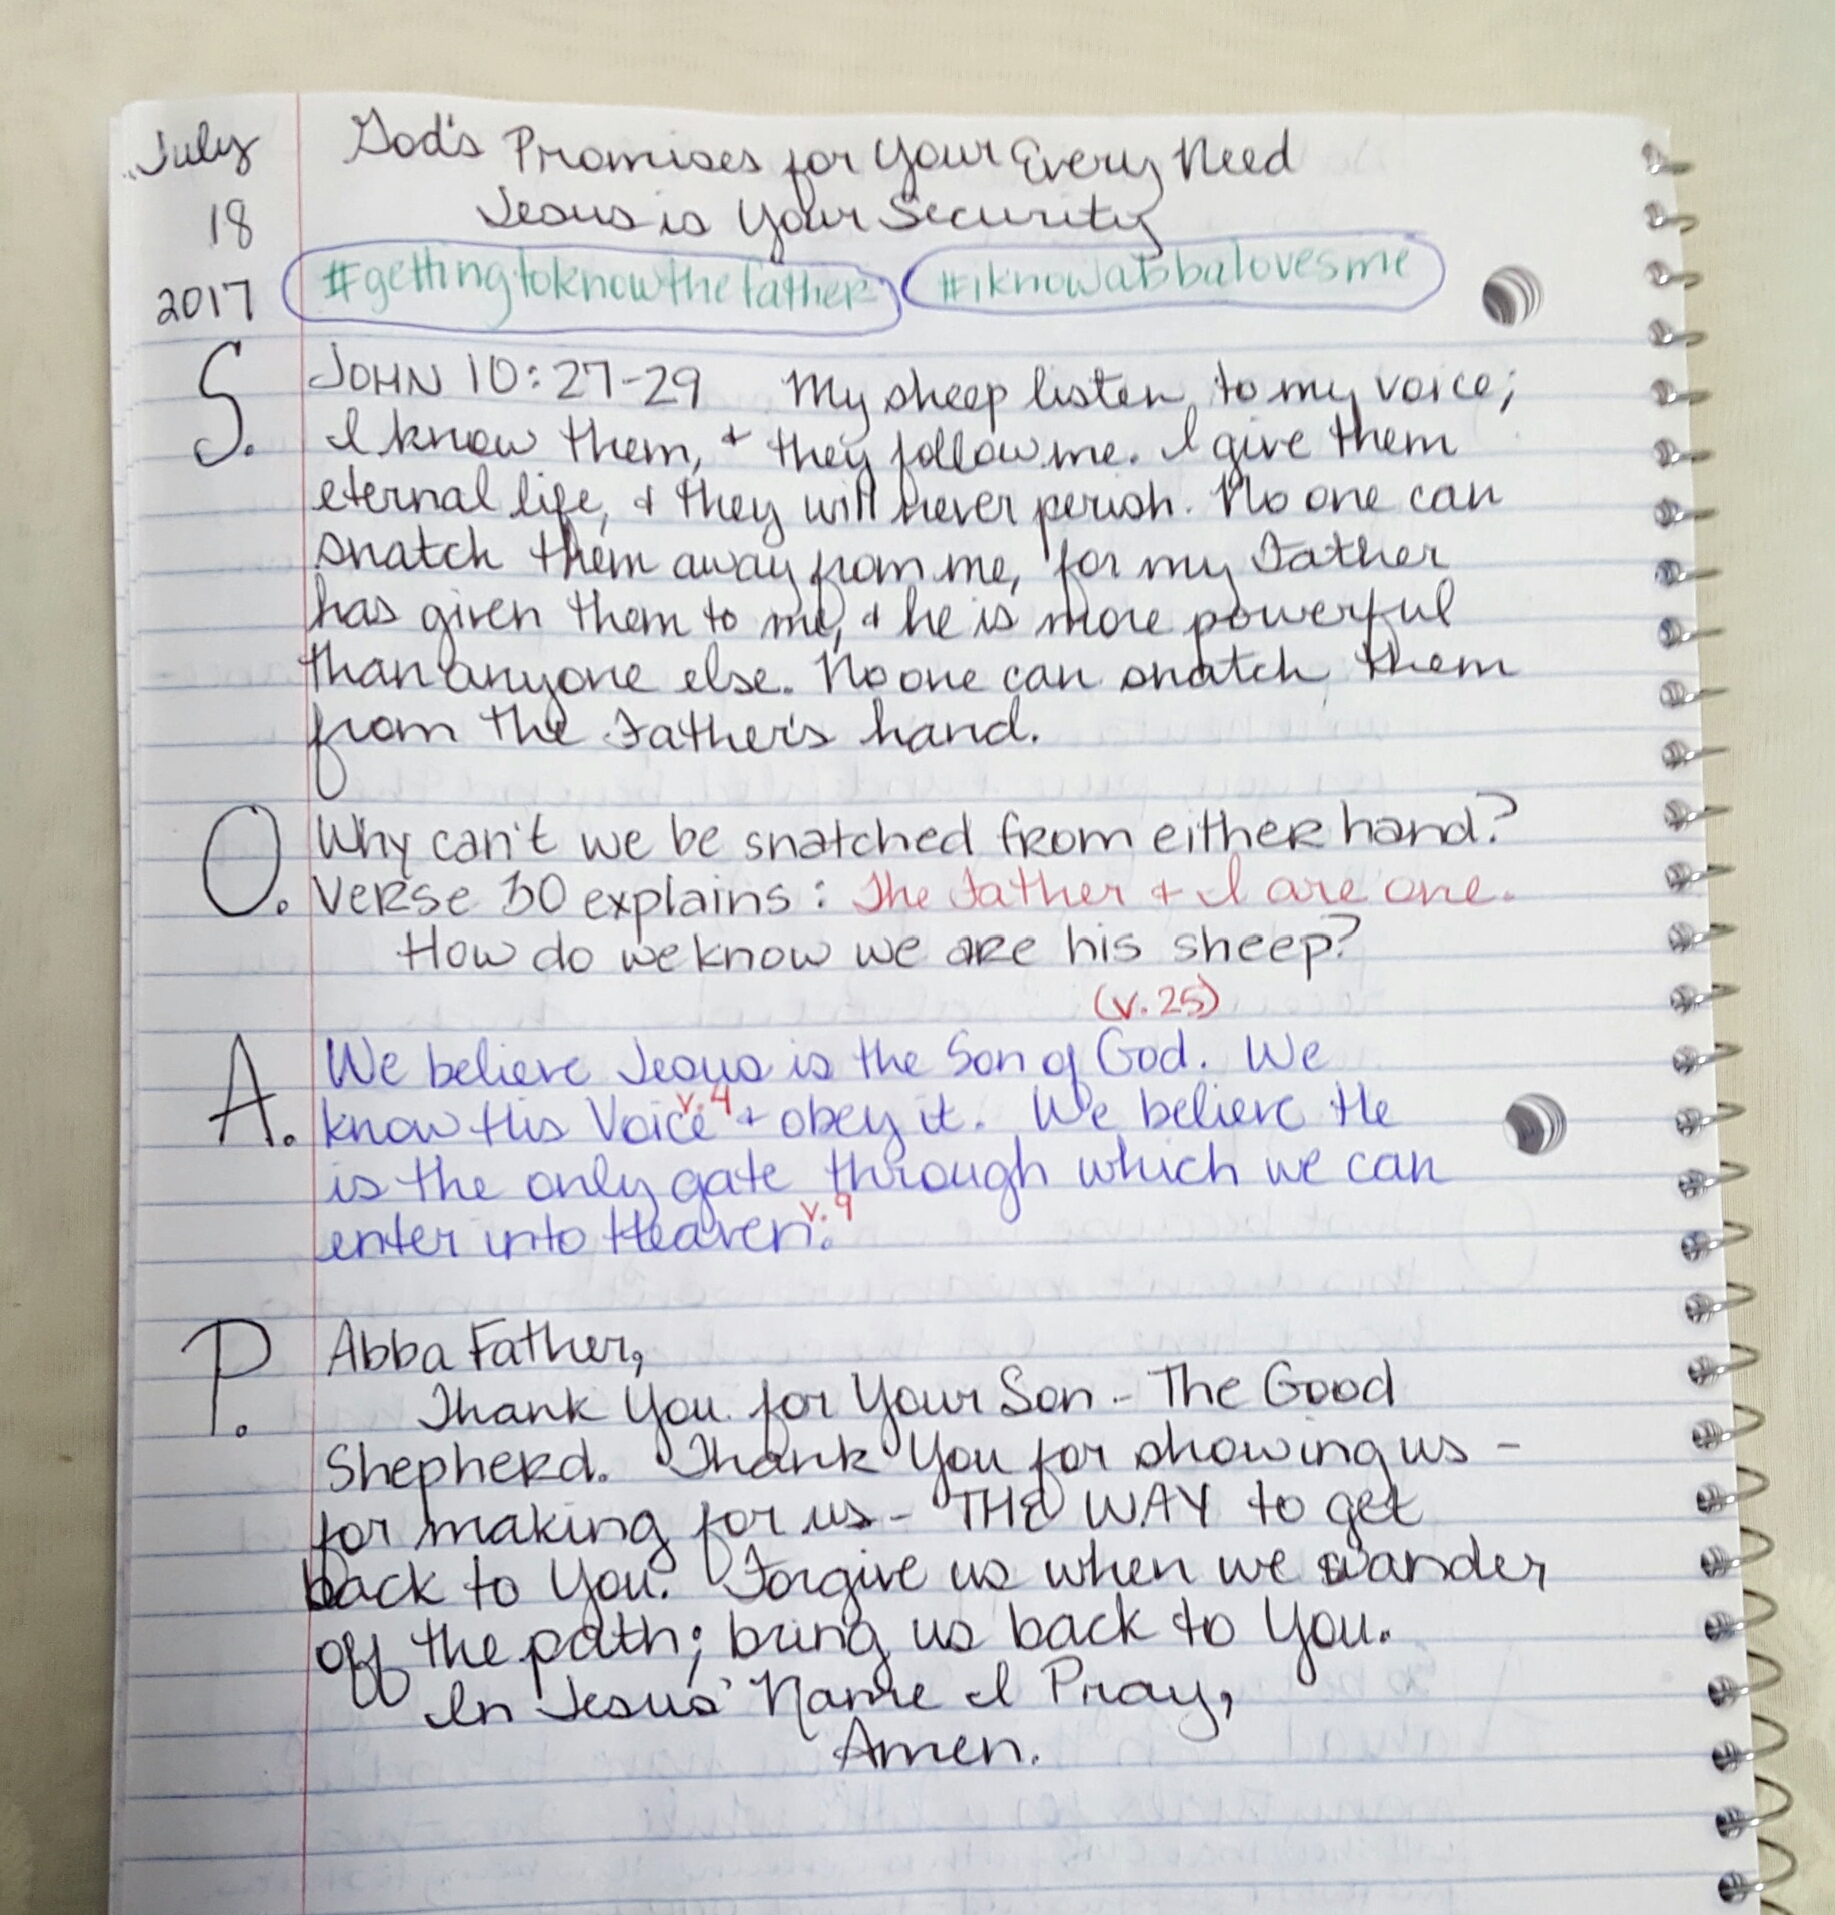 July
18
2017
God's Promises for Your Every Need
Jesus is Your Security
#gettingtoknowthefather #iknowabbalovesme
S. JOHN 10:27-29 My sheep listen to my voice;
I know them, & they follow me. I give them
eternal life, & they will never perish. No one can
snatch them away from me, for my Father
has given them to me, & he is more powerful
than anyone else. No one can snatch them
from the Father's hand.
O. Why can't we be snatched from either hand?
Verse 30 explains: The Father & I are one.
How do we know we are his sheep?
(v. 25)
A. We believe Jesus is the Son of God. We
know His Voice v. 4 & obey it. We believe He
is the only gate through which we can
enter into Heaven. v. 9
P. Abba Father,
Thank You for Your Son - The Good
Shepherd. Thank You for showing us -
for making for us - THE WAY to get
back to You. Forgive us when we wander
off the path; bring us back to You.
In Jesus' Name I Pray,
Amen.